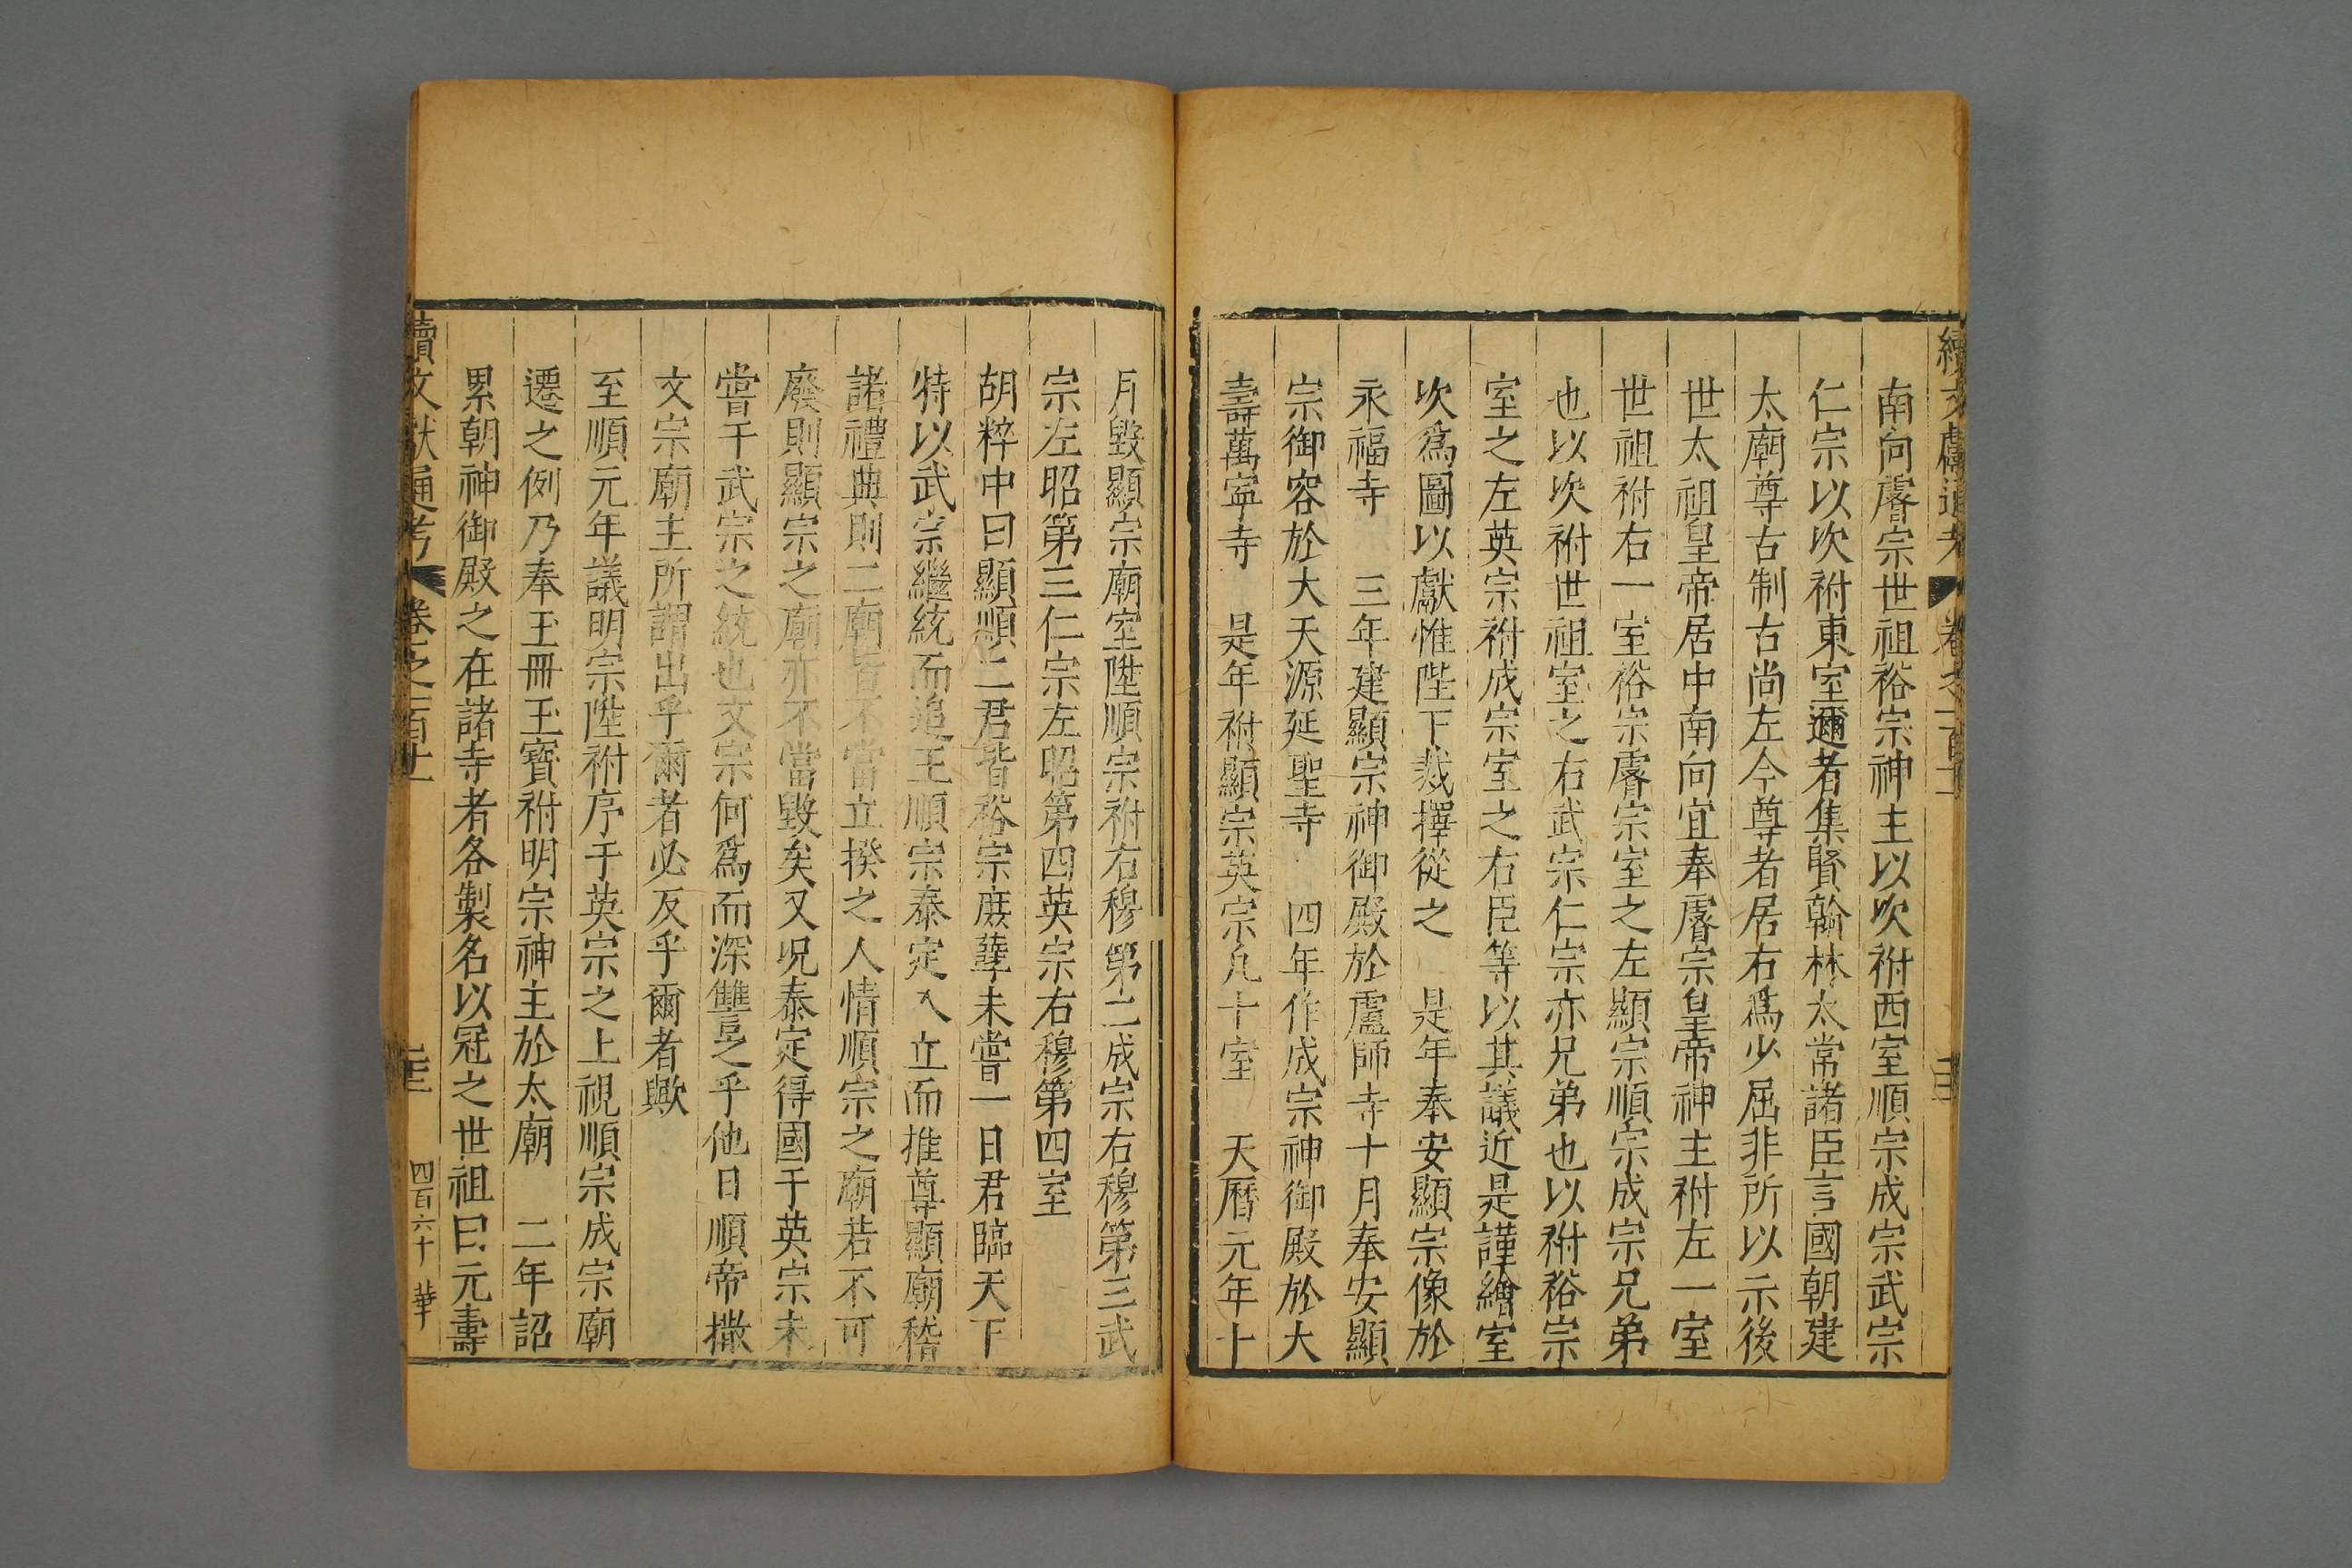 續文獻通考 卷之一百十
南向睿宗世祖裕宗神主以次祔西室順宗成宗武宗
仁宗以次祔東室邇者集賢翰林太常諸臣言國朝建
太廟尊古制古尚左今尊者居右爲少屈非所以示後
世太祖皇帝居中南向宜奉睿宗皇帝神主祔左一室
世祖祔右一室裕宗睿宗室之左顯宗順宗成宗兄弟
也以次祔世祖室之右武宗仁宗亦兄弟也以祔裕宗
室之左英宗祔成宗室之右臣等以其議近是謹繪室
次爲圖以獻惟陛下裁擇從之 是年奉安顯宗像於
永福寺 三年建顯宗神御殿於盧師寺十月奉安顯
宗御容於大天源延聖寺 四年作成宗神御殿於大
壽萬寧寺 是年祔顯宗英宗凡十室 天曆元年十
月毀顯宗廟室陞順宗祔右穆第二成宗右穆第三武
宗左昭第三仁宗左昭第四英宗右穆第四室
胡粹中曰顯順二君皆裕宗庶孽未嘗一日君臨天下
特以武宗繼統而追王順宗泰定入立而推尊顯廟稽
諸禮典則二廟皆不當立揆之人情順宗之廟若不可
廢則顯宗之廟亦不當毀矣又况泰定得國于英宗未
嘗干武宗之統也文宗何爲而深讐之乎他日順帝撒
文宗廟主所謂出乎爾者必反乎爾者歟
至順元年議明宗陞祔序于英宗之上視順宗成宗廟
遷之例乃奉玉冊玉寶祔明宗神主於太廟 二年詔
累朝神御殿之在諸寺者各製名以冠之世祖曰元壽
續文獻通考 卷之一百十 四百六十 華